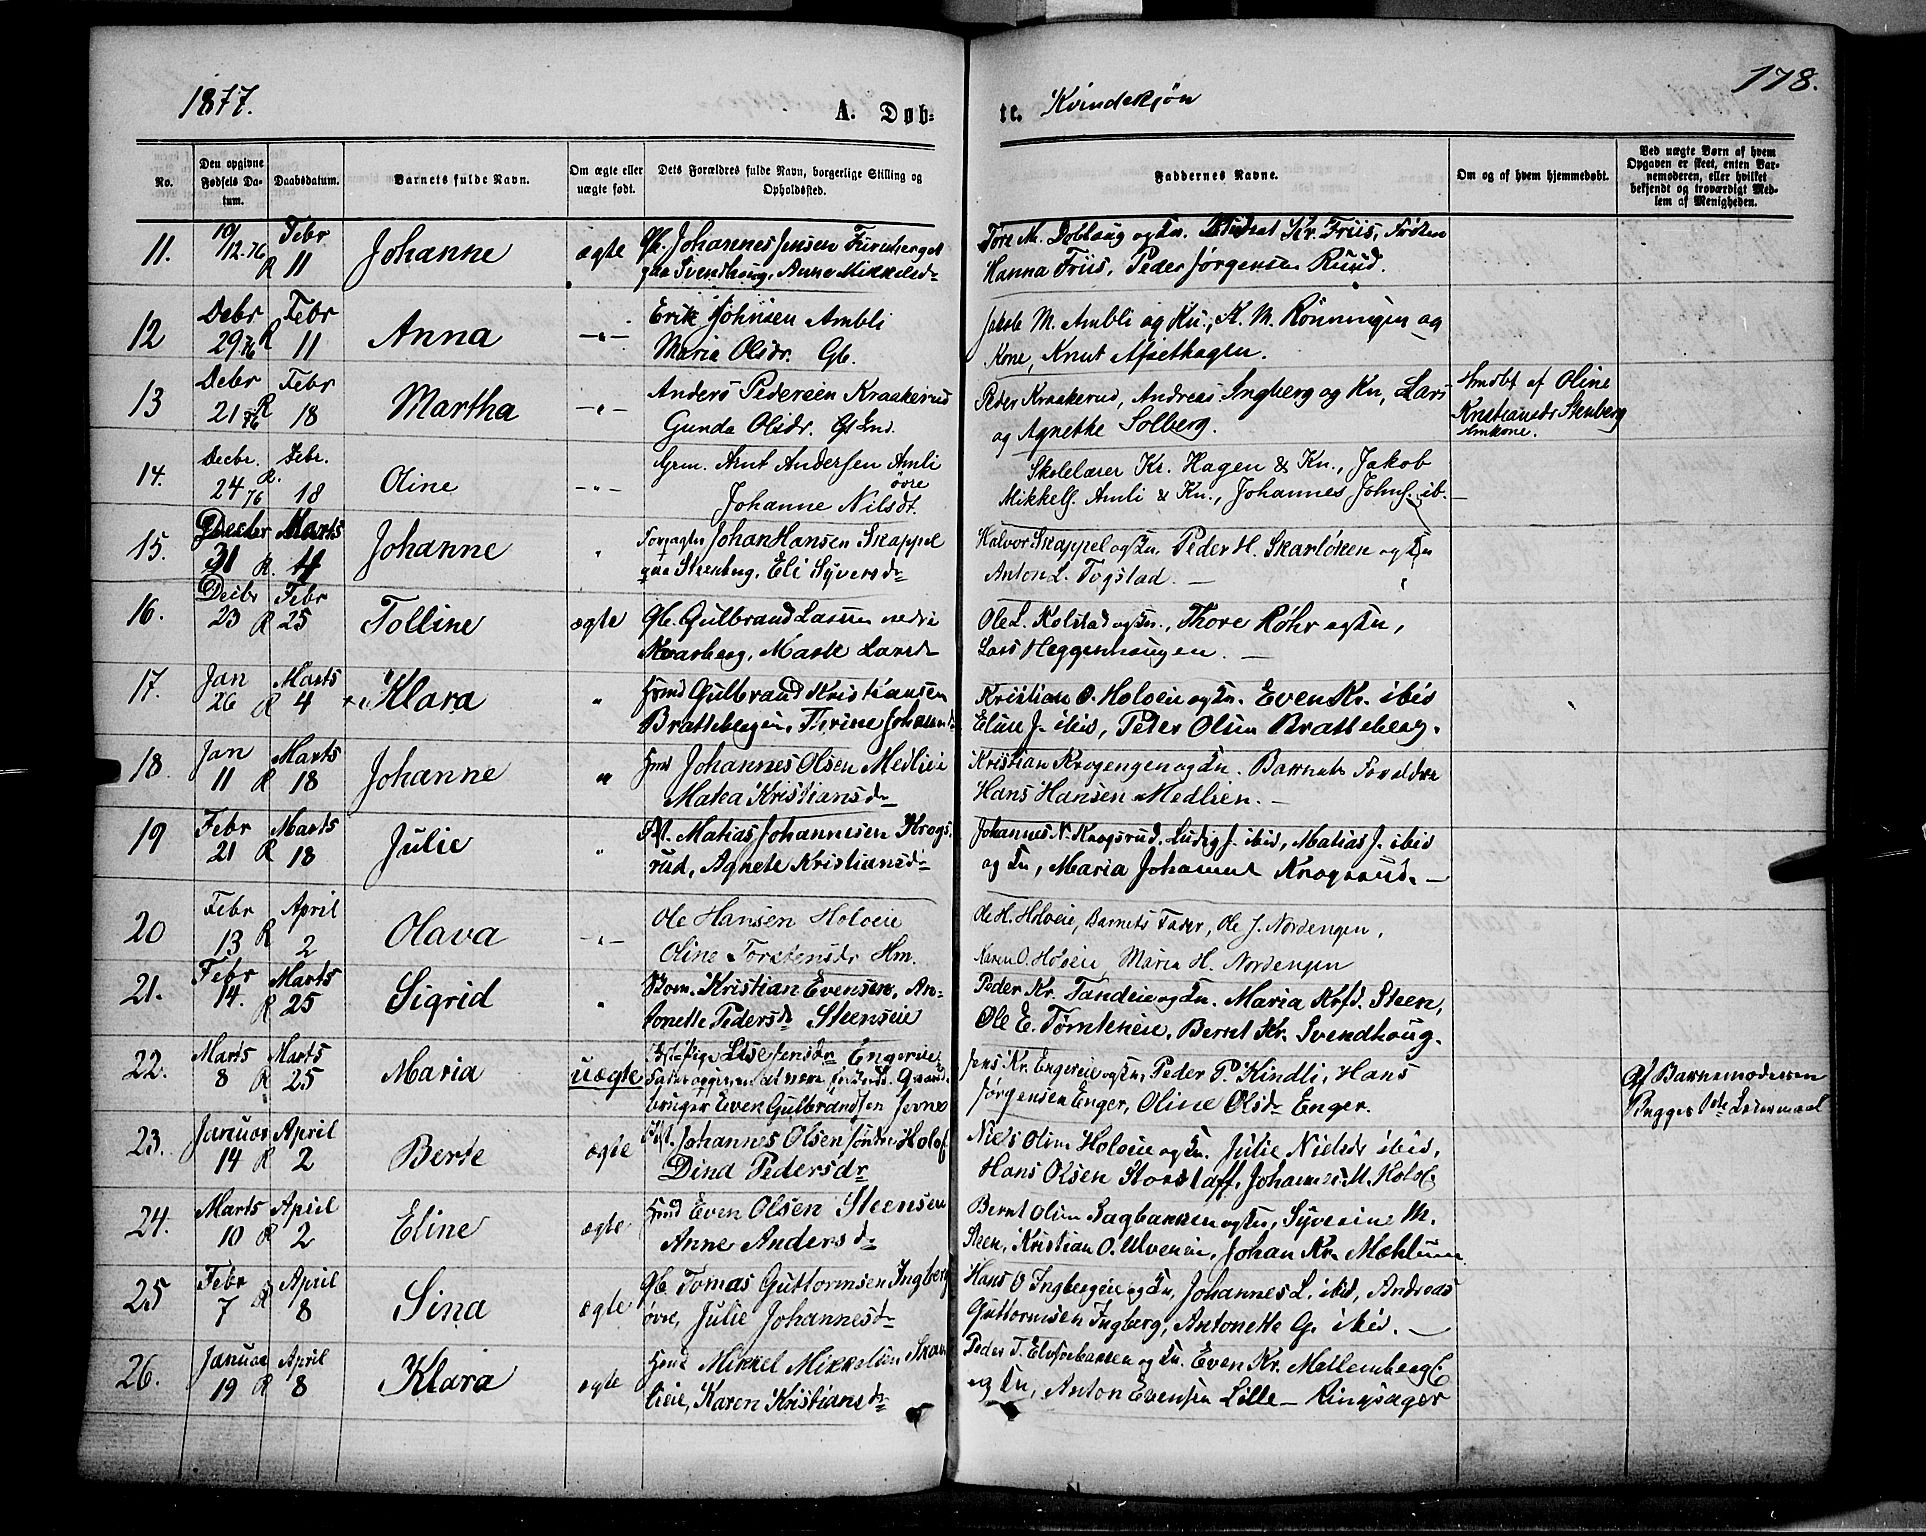 1877.
A. Døb-
te. Kvindekjøn
178.
No.
Den opgivne Fødsels Datum.
Daabsdatum.
Barnets fulde Navn.
Om ægte eller uægte født.
Dets Forældres fulde Navn, borgerlige Stilling og Opholdssted.
Faddernes Navne.
Om og af hvem hjemmedøbt.
Ved uægte Børn af hvem Opgaven er skeet, enten Barnemoderen, eller hvilket bekjendt og troværdigt Medlem af Menigheden.
11. 10/12.76 R Febr 11 Johanne ægte Gb. Johannes Jensen Furuberget
paa Svendhoug, Anne Mikkelsd
Tore M. Doblaug og Kn. Kr. Friis, Frøken
Hanna Friis, Peder Jørgensen Ruud.
12 Debr 29 76 R Febr 11 Anna -"- Erik Johnsen Ambli
Maria Olsdr. Gb.
Jakob M. Ambli og Kn., K. M. Rönningen og
Kone, Knut Afsethagen.
13 Debr 21 76 R Febr 18 Martha -"- Anders Pedersen Kraakerud
Gunda Olsdr.
Peder Kraakerud, Andreas Ingberg og Kn, Lars
og Agnethe Solberg.
Hmdbt af Oline
Kristiansdr Stenberg
14. Decbr. 24 76 R. Febr. 18 Oline -"- Grm. Arnt Andersen Amli
övre
Johanne Nilsdt.
Skolelærer Kr. Hagen & Kn., Jakob
Mikkels. Amli & Kn., Johannes Johns. ib.
15. Decbr 31 R. Marts 4 Johanne " Forpagter Johan Hansen Skappel
paa Steenberg, Eli Syversd
Halvor Skappel og Kn. Peder H. Skarløken og Kn
Anton L. Togstad.
16. Decbr 23 R Febr 25 Tolline ægte Gb. Gulbrand Larsen nedre
Kvarberg, Marte Larsd
Ole L. Kolstad og Kn., Thore Røhr og Kn,
Lars Heggenhaugen.
17. Jan 26 R Marts 4 Klara " Hmd Gulbrand Kristiansen
Bratteberg, Therine Johansd
Kristian O. Holoeie og Kn. Even Kr. ibid
Eline J. ibid, Peder Olsen Bratteberg.
18. Jan 11 R Marts 18 Johanne " Hmd Johannes Olsen Medliei
Matea Kristiansd
Kristian Krogengen og Kn. Barnets Forældre
Hans Hansen Medlien.
19 Febr 21 R Marts 18 Julie " Matias Johannesen Krogs-
rud, Agnete Kristiansd
Johannes N. Krogsrud, Ludvig J. ibid, Matias J. ibid
og Kn, Maria Johannesd Krogsrud.
20 Febr 13 R April 2 Olava -"- Ole Hansen Holoeie
Oline Torstensdr Hm.
Ole H. Holoeie, Barnets Fader, Ole J. Nordengen,
Karen O. Holoeie, Maria H. Nordengen
21. Febr 14. R Marts 25 Sigrid " Kristian Evensen, An-
tonette Pedersd Steenseie
Peder Kr. Tandeie og Kn. Maria Krfd. Steen,
Ole E. Tørnteneie, Bernt Kr. Svendhoug.
22. Marts 8 R Marts 25 Maria uægte Pige Lise Jensdr Engereie
Fader opgiven at være Gaard-
bruger Even Gulbrandsen Jevne
Jens Kr. Engereie og Kn, Peder P. Kindli, Hans
Jørgensen Enger, Oline Olsd Enger.
Af Barnemoderen
23. Januar 14 R April 2 Berte ægte Johannes Olsen søndre Holoe
Dina Pedersdr
Niels Olsen Holoeie og Kn. Julie Nielsdr ibid,
Hans Olsen Storstaff, Johannes M. Holoe.
24. Marts 10 R April 2 Eline ægte Hmd Even Olsen Steensen
Anne Andersd
Bernt Olsen Sagbakken og Kn, Syverine M.
Steen, Kristian O. Ulveneie, Johan Kr. Mæhlum
25 Febr 7 R April 8 Sina ægte Gb. Tomas Guttormsen Ingberg
øvre, Julie Johannesd
Hans O Ingbergeie og Kn, Johannes L. ibid, Andreas
Guttormsen Ingberg, Antonette G. ibid.
26. Januar 19 R April 8 Klara ægte Hmd Mikkel Mikkelsen Skar
lieie, Karen Kristiansd
Peder T. Elvsvebakken og Kn. Even Kr. Mellemberg
og Kn, Anton Evensen Lille-Ringsager